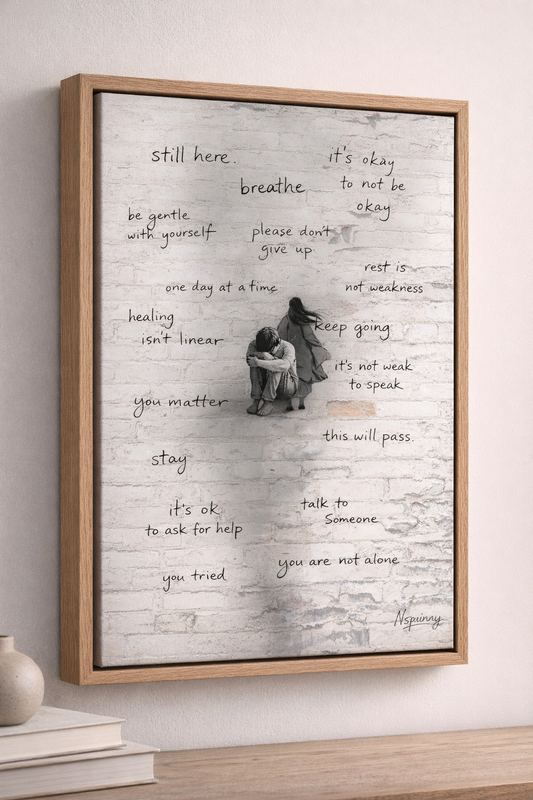 still here.
it's okay
to not be
okay
breathe
be gentle
with yourself
please don't
give up
rest is
not weakness
one day at a time
healing
isn't linear
keep going
it's not weak
to speak
you matter
this will pass.
stay
it's ok
to ask for help
talk to
Someone
you are not alone
you tried
Nspinny